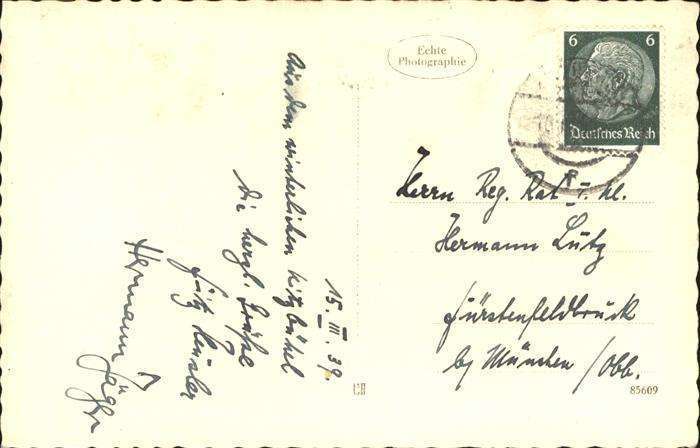 15. III. 39.
Aus dem winterlichen Kitzbühel
Die herzl. Grüße
Fritz
Hermann Jäger
Echte
Photographie
6 6
Deutsches Reich
Herrn Reg. Rat i. R.
Hermann Lutz
Fürstenfeldbruck
bei München / Obb.
85609